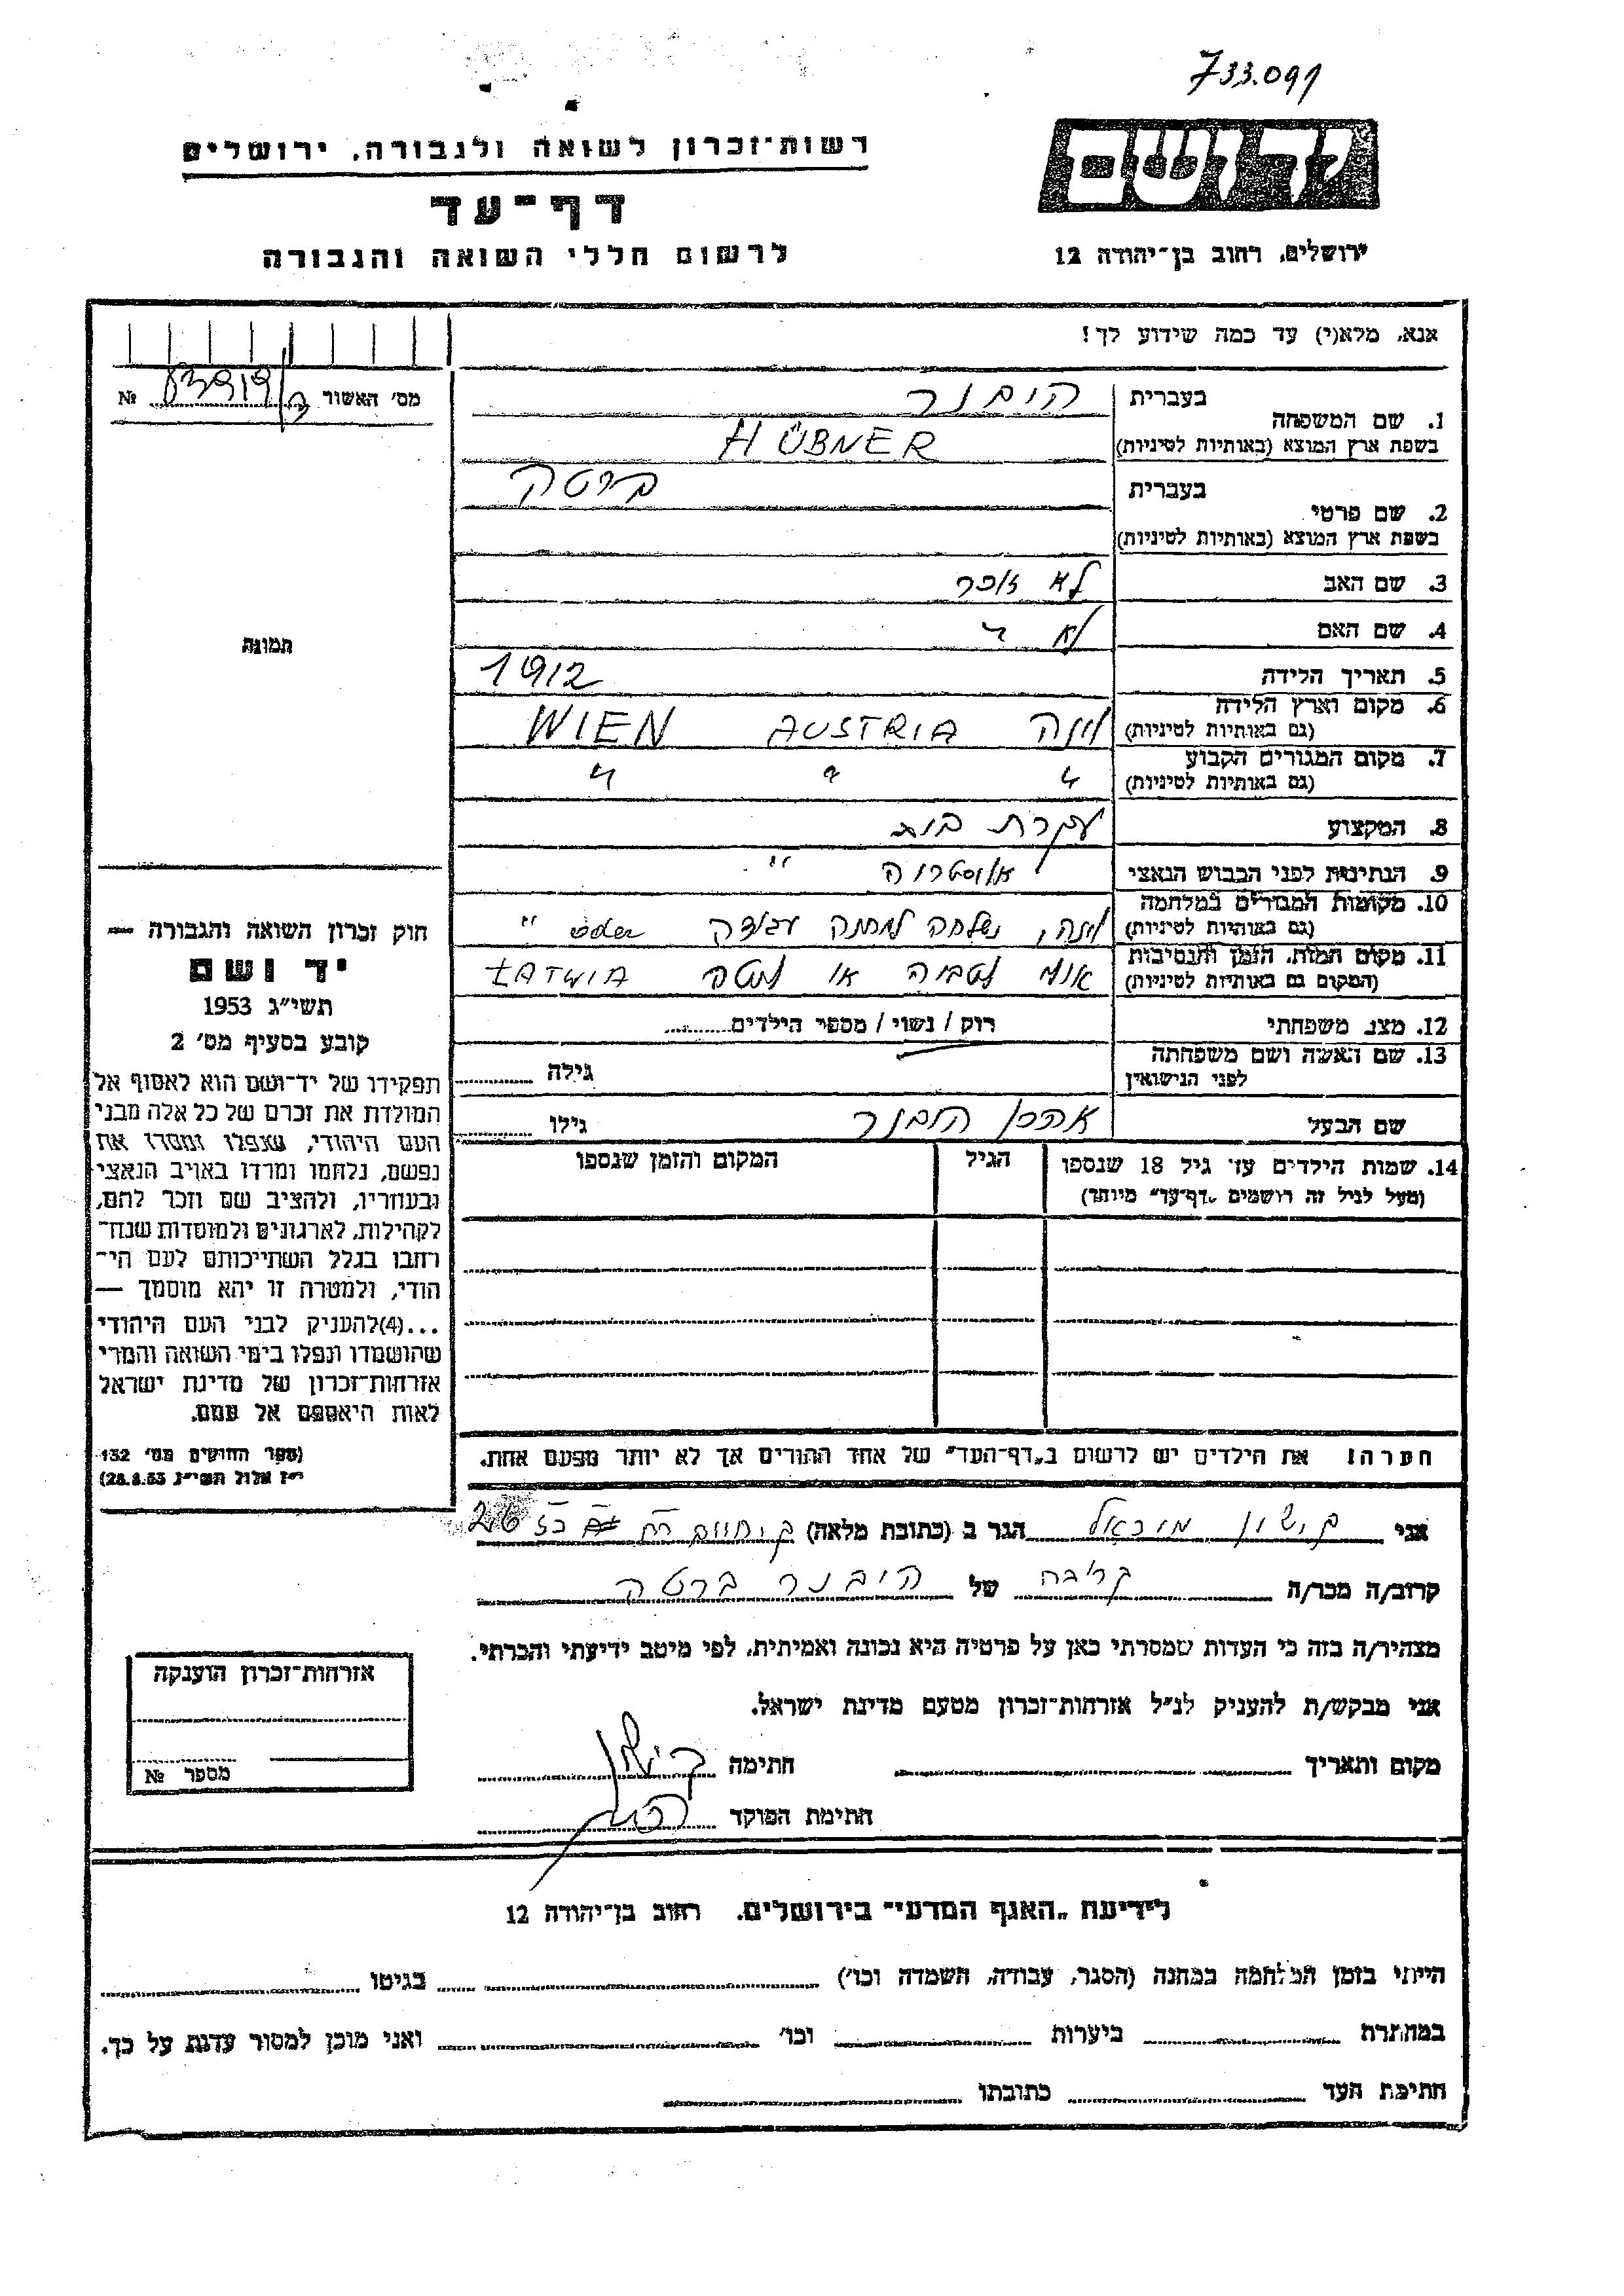 733.091
יד ושם
רשות־זכרון לשואה ולגבורה, ירושלים
דף־עד
לרשום חללי השואה והגבורה
ירושלים, רחוב בן־יהודה 12
אנא, מלא(י) עד כמה שידוע לך!
מס׳ האשור №
1. שם המשפחה
בעברית היבנר
בשפת ארץ המוצא (באותיות לטיניות) HÜBNER
2. שם פרטי
בעברית ברטה
בשפת ארץ המוצא (באותיות לטיניות)
3. שם האב לא זוכר
4. שם האם לא "
5. תאריך הלידה 1912
6. מקום וארץ הלידה (גם באותיות לטיניות) וינה AUSTRIA WIEN
7. מקום המגורים הקבוע (גם באותיות לטיניות) " " "
8. המקצוע עקרת בית
9. הנתינות לפני הכבוש הנאצי אוסטריה "
10. מקומות המגורים במלחמה (גם באותיות לטיניות) וינה, נשלחה למחנה עבודה
11. מקום המות, הזמן והנסיבות (המקום גם באותיות לטיניות) או ליטה LATWIA
12. מצב משפחתי רווק / נשוי / מספר הילדים
13. שם האשה ושם משפחתה לפני הנישואין
גילה
שם הבעל היבנר
גילו
14. שמות הילדים עד גיל 18 שנספו
(מעל לגיל זה רושמים „דף־עד״ מיוחד)
הגיל
המקום והזמן שנספו
הערה! את הילדים יש לרשום ב„דף־העד״ של אחד ההורים אך לא יותר מפעם אחת.
תמונה
חוק זכרון השואה והגבורה —
יד ושם
תשי״ג 1953
קובע בסעיף מס׳ 2
תפקידו של יד־ושם הוא לאסוף אל
המולדת את זכרם של כל אלה מבני
העם היהודי, שנפלו ומסרו את
נפשם, נלחמו ומרדו באויב הנאצי
ובעוזריו, ולהציב שם וזכר להם,
לקהילות, לארגונים ולמוסדות שנח־
רבו בגלל השתייכותם לעם הי־
הודי, ולמטרה זו יהא מוסמך —
...(4)להעניק לבני העם היהודי
שהושמדו ונפלו בימי השואה והמרי
אזרחות־זכרון של מדינת ישראל
לאות היאספם אל עמם.
(ספר החוקים מס׳ 132
י״ז אלול תשי״ג 28.8.53)
אני קישון מיכאל הגר ב (כתובת מלאה)
קרוב/ה מכר/ה קרובה של היבנר ברטה
מצהיר/ה בזה כי העדות שמסרתי כאן על פרטיה היא נכונה ואמיתית, לפי מיטב ידיעתי והכרתי.
אני מבקש/ת להעניק לנ״ל אזרחות־זכרון מטעם מדינת ישראל.
מקום ותאריך חתימה קישון
חתימת הפוקד
אזרחות־זכרון הוענקה
מספר №
לידיעת „האגף המדעי״ בירושלים, רחוב בן־יהודה 12
הייתי בזמן המלחמה במחנה (הסגר, עבודה, השמדה וכו׳) בגיטו
במחתרת ביערות וכו׳ ואני מוכן למסור עדות על כך.
חתימת העד כתובתו